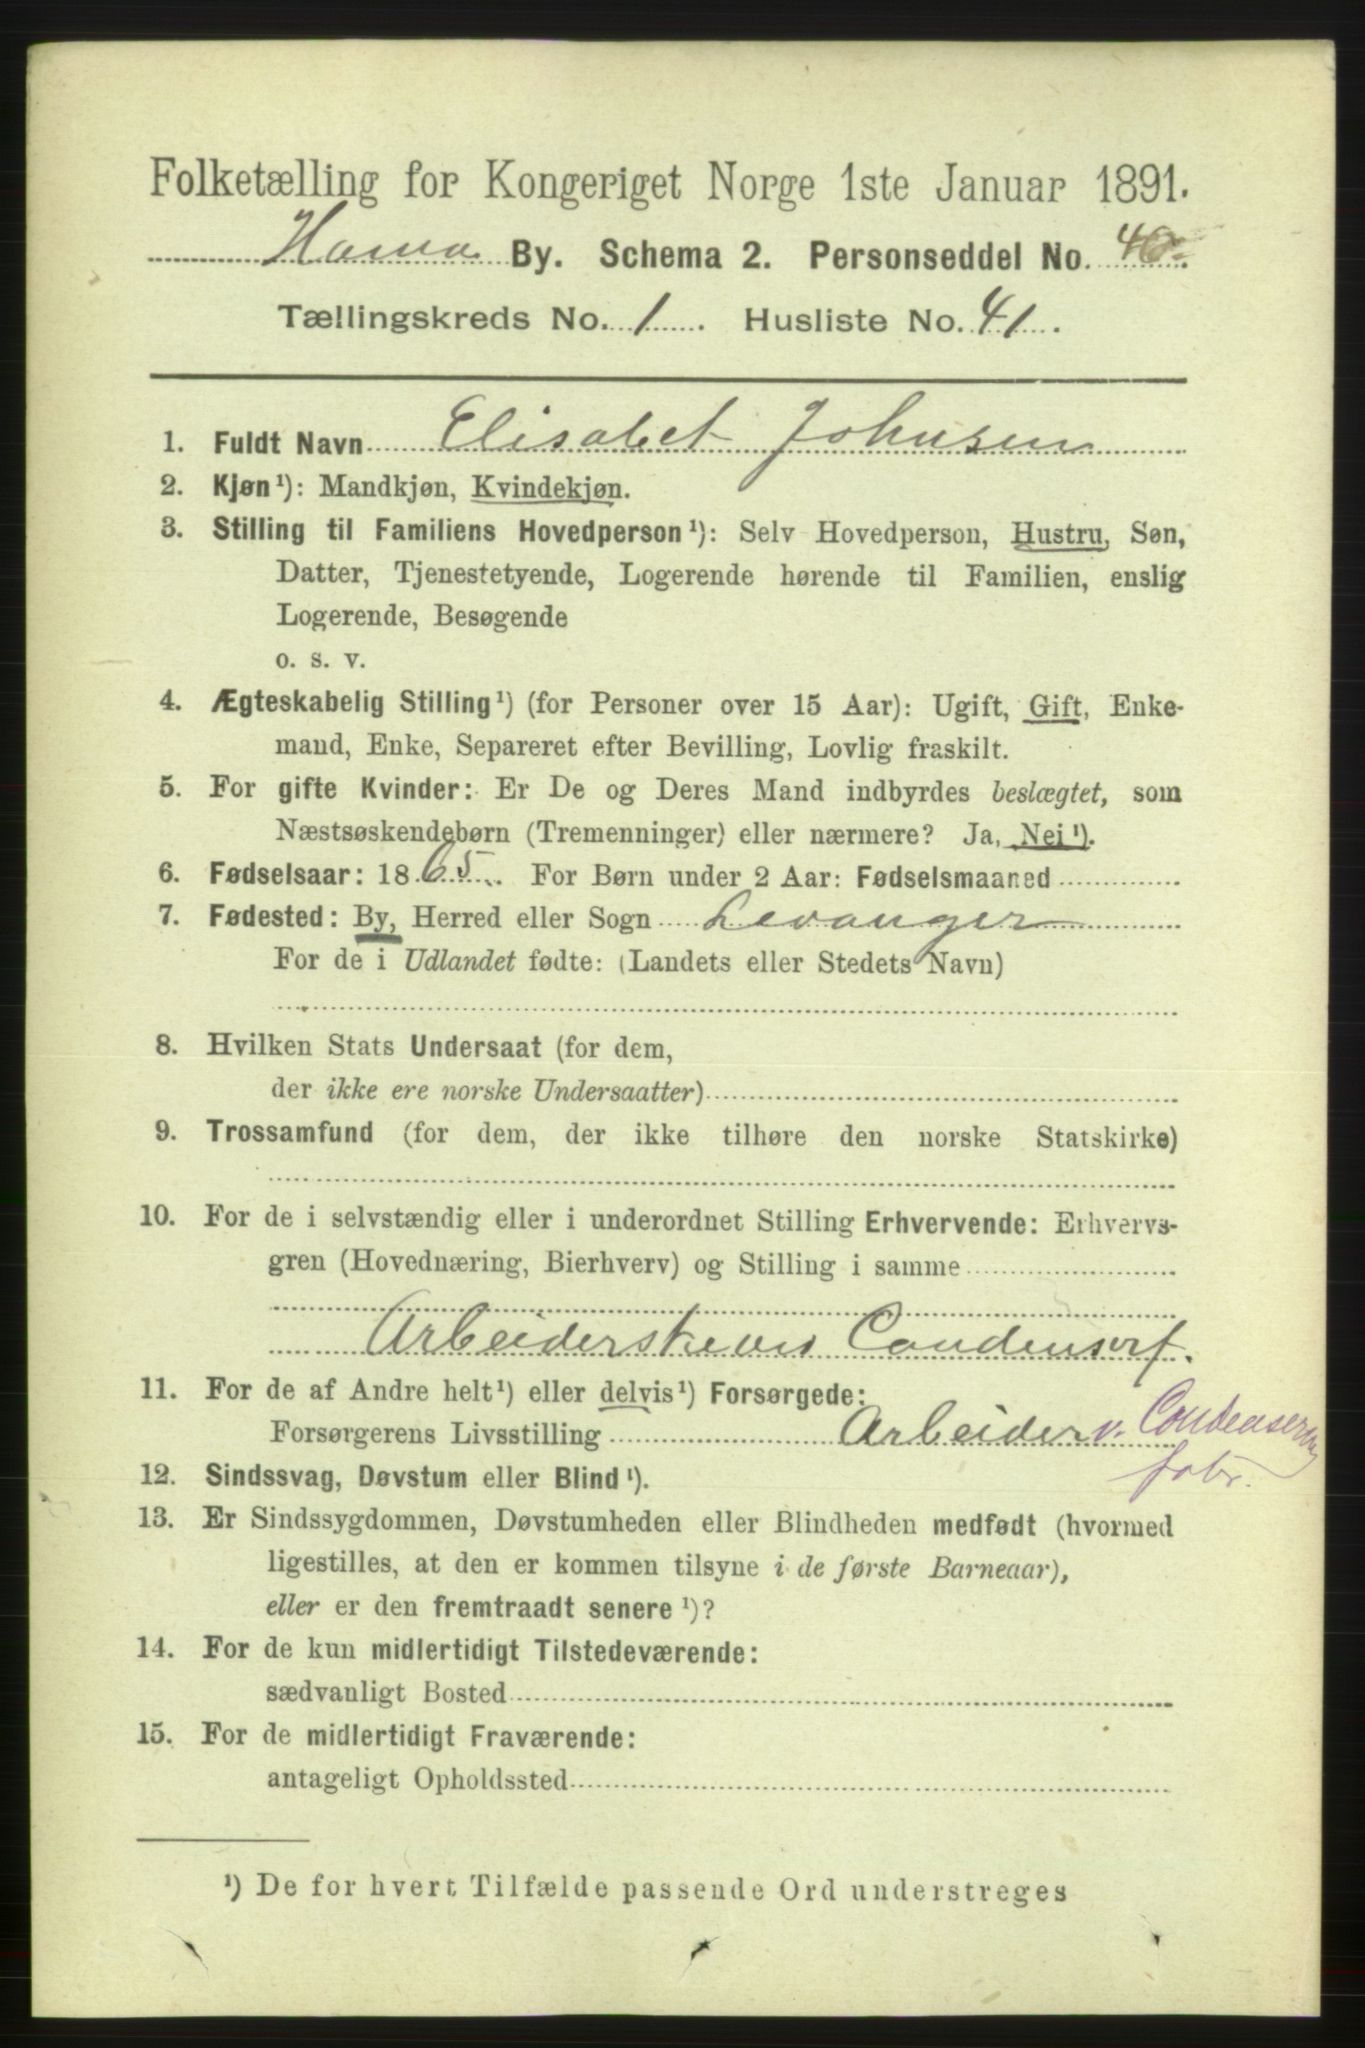 Folketælling for Kongeriget Norge 1ste Januar 1891.
Hamar By. Schema 2. Personseddel No. 40
Tællingskreds No. 1. Husliste No. 41.
1. Fuldt Navn Elisabet Johnsen
2. Kjøn¹): Mandkjøn, Kvindekjøn.
3. Stilling til Familiens Hovedperson¹): Selv Hovedperson, Hustru, Søn,
Datter, Tjenestetyende, Logerende hørende til Familien, enslig
Logerende, Besøgende
o. s. v.
4. Ægteskabelig Stilling¹) (for Personer over 15 Aar): Ugift, Gift, Enke-
mand, Enke, Separeret efter Bevilling, Lovlig fraskilt.
5. For gifte Kvinder: Er De og Deres Mand indbyrdes beslægtet, som
Næstsøskendebørn (Tremenninger) eller nærmere? Ja, Nei¹).
6. Fødselsaar: 1865. For Børn under 2 Aar: Fødselsmaaned
7. Fødested: By, Herred eller Sogn Levanger
For de i Udlandet fødte: (Landets eller Stedets Navn)
8. Hvilken Stats Undersaat (for dem,
der ikke ere norske Undersaatter)
9. Trossamfund (for dem, der ikke tilhøre den norske Statskirke)
10. For de i selvstændig eller i underordnet Stilling Erhvervende: Erhvervs-
gren (Hovednæring, Bierhverv) og Stilling i samme
Arbeiderske Condensf.
11. For de af Andre helt¹) eller delvis¹) Forsørgede:
Forsørgerens Livsstilling Arbeider v. Condensering
fabr.
12. Sindssvag, Døvstum eller Blind¹).
13. Er Sindssygdommen, Døvstumheden eller Blindheden medfødt (hvormed
ligestilles, at den er kommen tilsyne i de første Barneaar),
eller er den fremtraadt senere¹)?
14. For de kun midlertidigt Tilstedeværende:
sædvanligt Bosted
15. For de midlertidigt Fraværende:
antageligt Opholdssted
¹) De for hvert Tilfælde passende Ord understreges